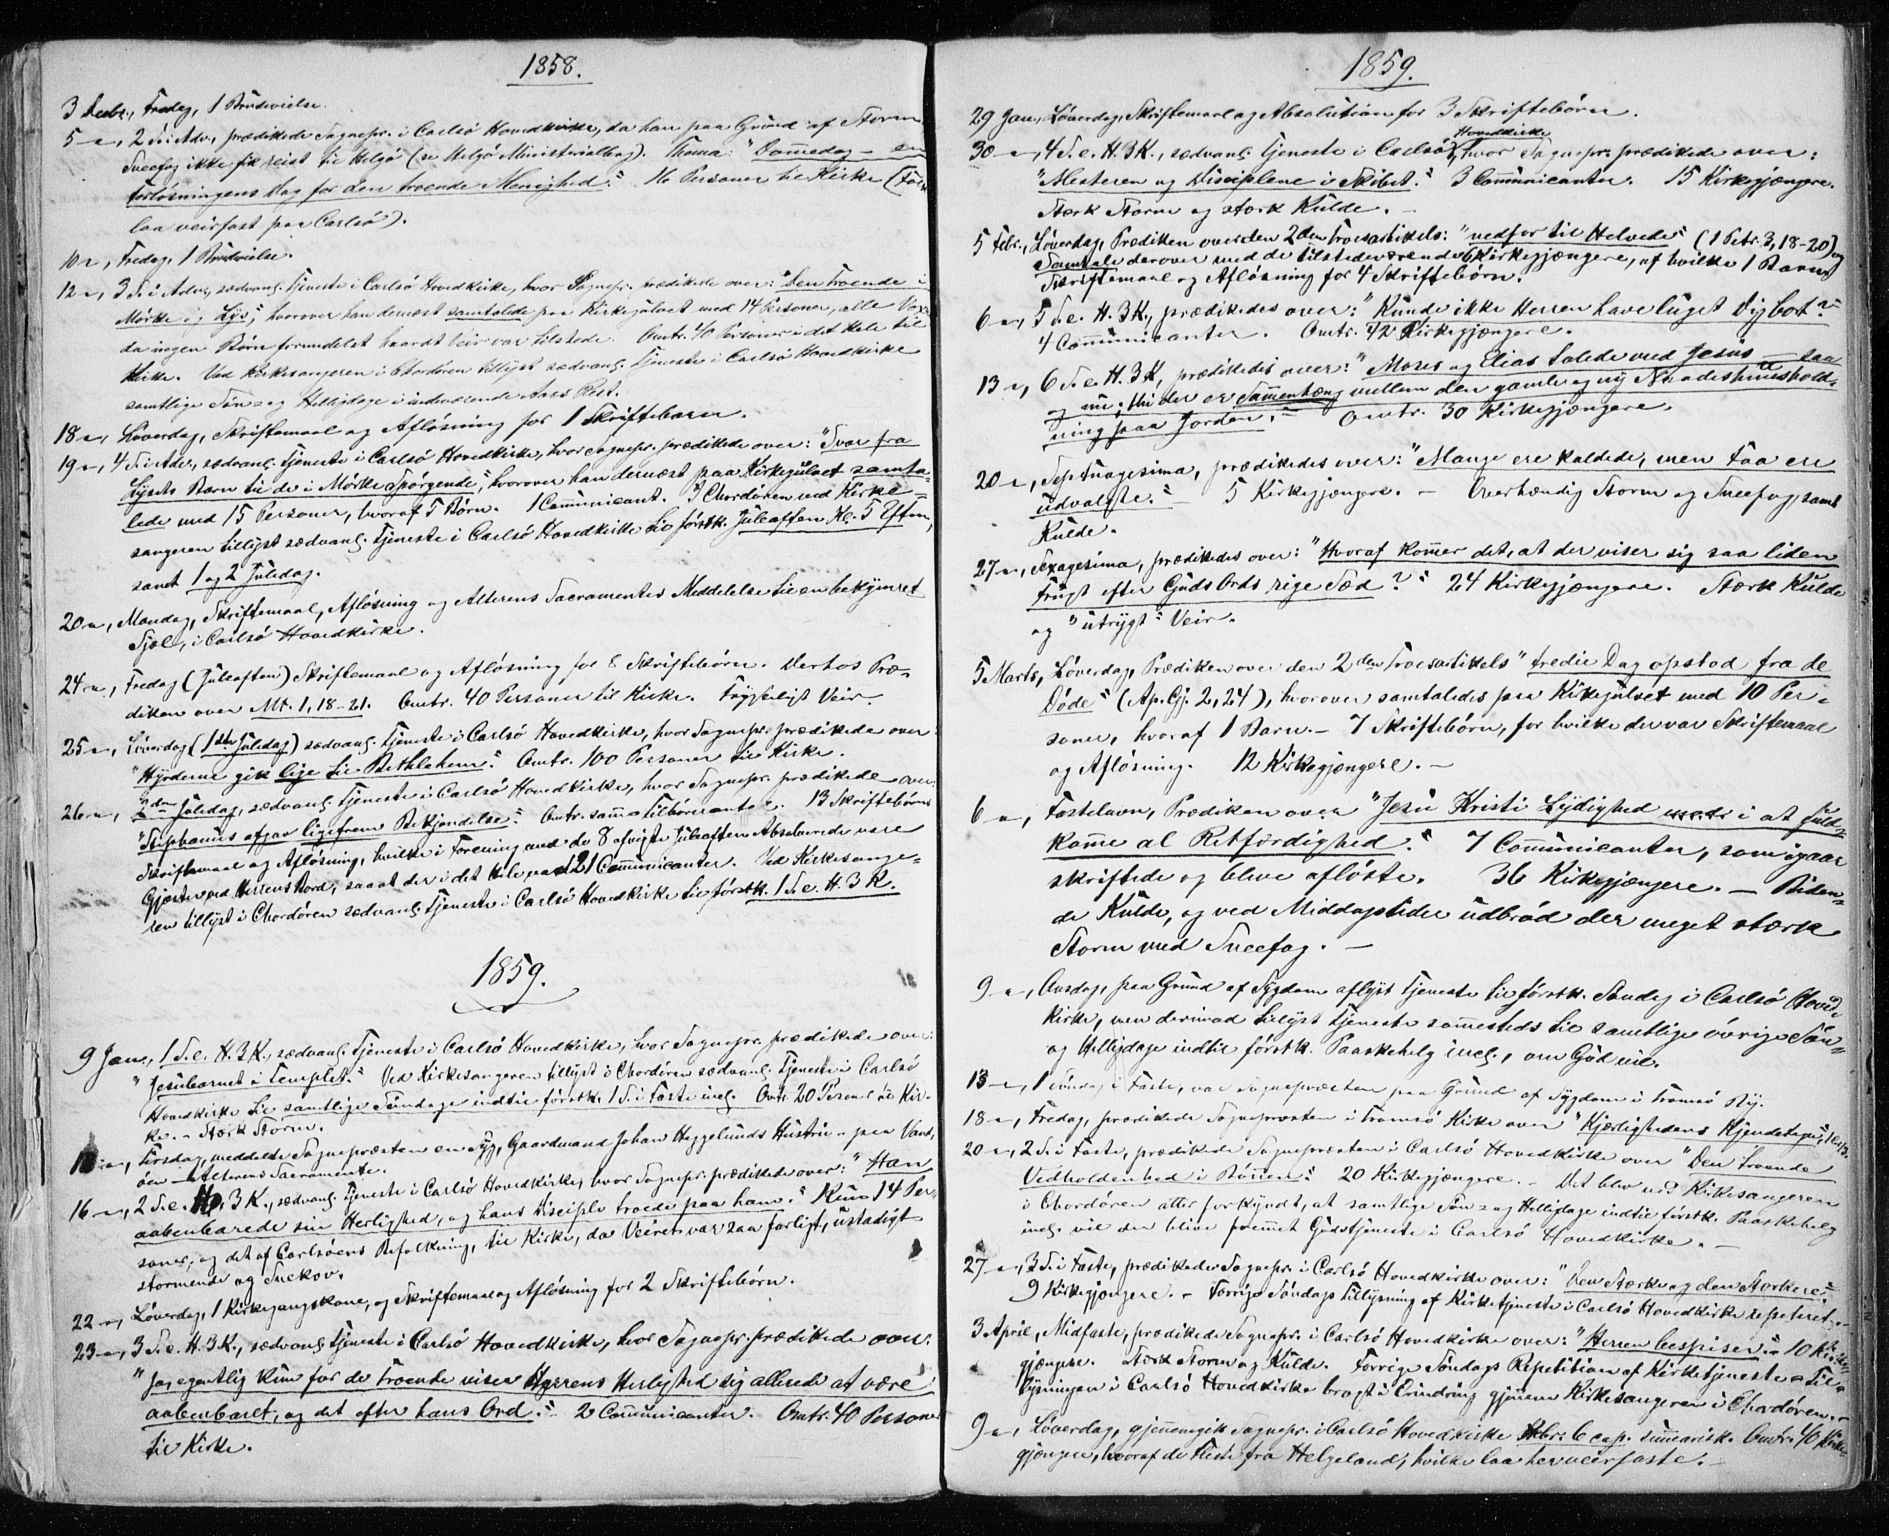 1858.
3 Decbr., Fredag, 1 Brudevielse.
5 –, 2 S. i Adv., prædikede Sognepr. i Carlsö Hovedkirke, da han paa Grund af Storm
Sneefog ikke fik reist til Helgö (se Helgö Ministerialbog). Thema: "Dom̄edag – en
Forlösningens Dag for den troende Menighed." 16 Personer til Kirke (Folk
laa veirfast paa Carlsö).
10 –, Fredag, 1 Brudevielse.
12 –, 3 S. i Adv., sædvanl. Tjeneste i Carlsö Hovedkirke, hvor Sognepr. prædikede over: "Den troende i
Mörke og Lys", hvorover han dernæst samtalede paa Kirkegulvet med 14 Personer, alle Voxne
da ingen Börn formedelst haardt Veir var tilstede. Omtr. 40 Personer i det Hele til
Kirke. Ved Kirkesangeren i Chordören tillyst sædvanl. Tjeneste i Carlsö Hovedkirke
samtlige Sön- og Helligdage i indeværende Aars Rest.
18 –, Löverdag, Skriftemaal og Aflösning for 1 Skriftebarn.
19 –, 4 S. i Adv., sædvanl. Tjeneste i Carlsö Hovedkirke, hvor Sognepr. prædikede over: "Svar fra
Lysets Barn til de i Mörke Spörgende", hvorover han dernæst paa Kirkegulvet samta-
lede med 15 Personer, hvoraf 5 Börn. 1 Com̄unicant. I Chordören ved Kirke-
sangeren tillyst sædvanl. Tjeneste i Carlsö Hovedkirke til förstk. Juleaften Kl. 5 Eftm.,
samt 1 og 2 Juledag.
20 –, Mandag, Skriftemaal, Aflösning og Alterens Sacramentes Meddelelse til en bekym̄ret
Sjæl, i Carlsö Hovedkirke.
24 –, Fredag (Juleaften) Skriftemaal og Aflösning for 8 Skriftebörn. Derhos Præ-
diken over Mt. 1, 18-21. Omtr. 40 Personer til Kirke. Frygteligt Veir.
25 –, Löverdag (1ste Juledag) sædvanl. Tjeneste i Carlsö Hovedkirke, hvor Sognepr. prædikede over:
"Hyrderne gik lige til Bethlehem." Omtr. 100 Personer til Kirke.
26 –, 2den Juledag, sædvanl. Tjeneste i Carlsö Hovedkirke, hvor Sognepr. prædikede over:
"Stephanus afgav ligefrem Bekjendelse." Omtr. sam̄e Tilhörerantal. 13 Skriftebörns
Skriftemaal og Aflösning, hvilke i Forening med de 8 afvigte Juleaften Absolverede vare
Gjæster ved Herrens Bord, saa at der i det Hele var 21 Com̄unicanter. Ved Kirkesange-
ren tillyst i Chordören sædvanl. Tjeneste i Carlsö Hovedkirke til förstk. 1 S. e. H. 3 K.
1859.
9 Jan., 1 S. e. H. 3 K., sædvanl. Tjeneste i Carlsö Hovedkirke, hvor Sognepr. prædikede over:
"Jesubarnet i Templet." Ved Kirkesangeren tillyst i Chordören sædvanl. Tjeneste i Carlsö
Hovedkirke til samtlige Söndage indtil förstk. 1 S. i Faste incl. Omtr. 20 Personer til Kir-
ke. – Stærk Storm.
–, Tirsdag, meddelte Sognepræsten en Syg, Gaardmand Johan Heggelunds Hustru – paa Vand-
öen – Alterens Sacramente.
16 –, 2 S. e. H. 3 K., sædvanl. Tjeneste i Carlsö Hovedkirke, hvor Sognepr. prædikede over: "Han
aabenbarede sin Herlighed, og hans Disciple troede paa ham." Kun 14 Per-
soner, og det af Carlsöens Befolkning, til Kirke, da Veiret var saa farligt, ustadigt
stormende og Snekov.
22 –, Löverdag, 1 Kirkegangskone, og Skriftemaal og Aflösning for 2 Skriftebörn.
23 –, 3 S. e. H. 3 K., sædvanl. Tjeneste i Carlsö Hovedkirke, hvor Sognepr. prædikede over:
"Jo, egentlig kun for de Troende viser Herrens Herlighed sig allerede at være
aabenbaret, og det efter hans Ord." – 2 Com̄unicanter. Omtr. 40 Personer
til Kirke.
1859.
29 Jan., Löverdag, Skriftemaal og Absolution for 3 Skriftebörn.
30 –, 4 S. e. H. 3 K., sædvanl. Tjeneste i Carlsö Hovedkirke, hvor Sognepr. prædikede over:
"Mesteren og Disciplene i Skibet." 3 Com̄unicanter. 15 Kirkegjængere.
Stærk Storm og stærk Kulde. –
5 Febr., Löverdag, Prædiken over den 2den Troesartikels: "nedfor til Helvede" (1 Petr. 3, 18-20) og
Samtale derover med de tilstedeværende 6 Kirkegjængere, af hvilke 1 Barn.
Skriftemaal og Aflösning for 4 Skriftebörn.
6 –, 5 S. e. H. 3 K., prædikedes over: "Kunde ikke Herren have luget Dig bort?"
4 Com̄unicanter. Omtr. 42 Kirkegjængere.
13 –, 6 S. e. H. 3 K., prædikedes over: "Moses og Elias talede med Jesus – saa
og nu; thi der er Sam̄enhæng mellem den gamle og ny Naadeshuushold-
ning paa Jorden." – Omtr. 30 Kirkegjængere.
20 –, Septuagesima, prædikedes over: "Mange ere kaldede, men Faa ere
udvalgte." – 5 Kirkegjængere. – Overhændig Storm og Sneefog, samt
Kulde.
27 –, Sexagesima, prædikedes over: "Hvoraf kom̄er det, at der viser sig saa liden
Frugt efter Guds Ords rige Sæd?" 24 Kirkegjængere. Stærk Kulde
og "utrygt" Veir.
5 Marts, Löverdag, Prædiken over den 2den Troesartikels "tredie Dag opstod fra de
Döde" (Ap. Gj. 2, 24), hvorover samtaledes paa Kirkegulvet med 10 Per-
soner, hvoraf 1 Barn. – 7 Skriftebörn, for hvilke der var Skriftemaal
og Aflösning. 12 Kirkegjængere. –
6 –, Fastelavn, Prædiken over "Jesu Kristi Lydighed i at fuld-
kom̄e al Retfærdighed." 7 Com̄unicanter, som igaar
skriftede og bleve aflöste. 36 Kirkegjængere. – Biden-
de Kulde, og ved Middagstider udbröd der meget stærk
Storm med Sneefog. –
9 –, Onsdag, paa Grund af Sygdom aflyst Tjeneste til förstk. Söndag i Carlsö Hoved-
kirke, men derimod tillyst Tjeneste sam̄esteds til samtlige övrige Sön-
og Helligdage indtil förstk. Paaskehelg incl., om Gud vil.
13 –, 1 Söndag i Faste, var Sognepræsten paa Grund af Sygdom i Tromsö By.
18 –, Fredag, prædikede Sognepræsten i Tromsö Kirke over "Kjærlighedens Kjendetegn",
20 –, 2 S. i Faste, prædikede Sognepræsten i Carlsö Hovedkirke over "Den troende
Vedholdenhed i Bön̄en." 20 Kirkegjængere. – Det blev ved Kirkesangeren
i Chordören atter forkyndt, at samtlige Sön- og Helligdage indtil förstk. Paaskehelg
incl. vil der blive frem̄et Gudstjeneste i Carlsö Hovedkirke. –
27 –, 3 S. i Faste, prædikede Sognepr. i Carlsö Hovedkirke over: "Den Stærke og den Stærkere."
9 Kirkegjængere. – Forrige Söndags Tillysning af Kirketjeneste i Carlsö Hovedkirke repeteret. –
3 April, Midfaste, prædikede Sognepr. i Carlsö Hovedkirke over: "Herren bespiser." 10 Kirke-
gjængere. Stærk Storm og Kulde. Forrige Söndags Repetition af Kirketjeneste Til-
lysningen i Carlsö Hovedkirke bragt i Erindring gjen̄em Kirkesangeren i Chordören. –
9 –, Löverdag, gjen̄emgik Sognepr. i Carlsö Hovedkirke Hebr. 6 cap. sum̄arisk. Omtr. 40 Kirke-
gjængere, hvoraf de Fleste fra Helgeland, hvilke laa her veirfaste. –